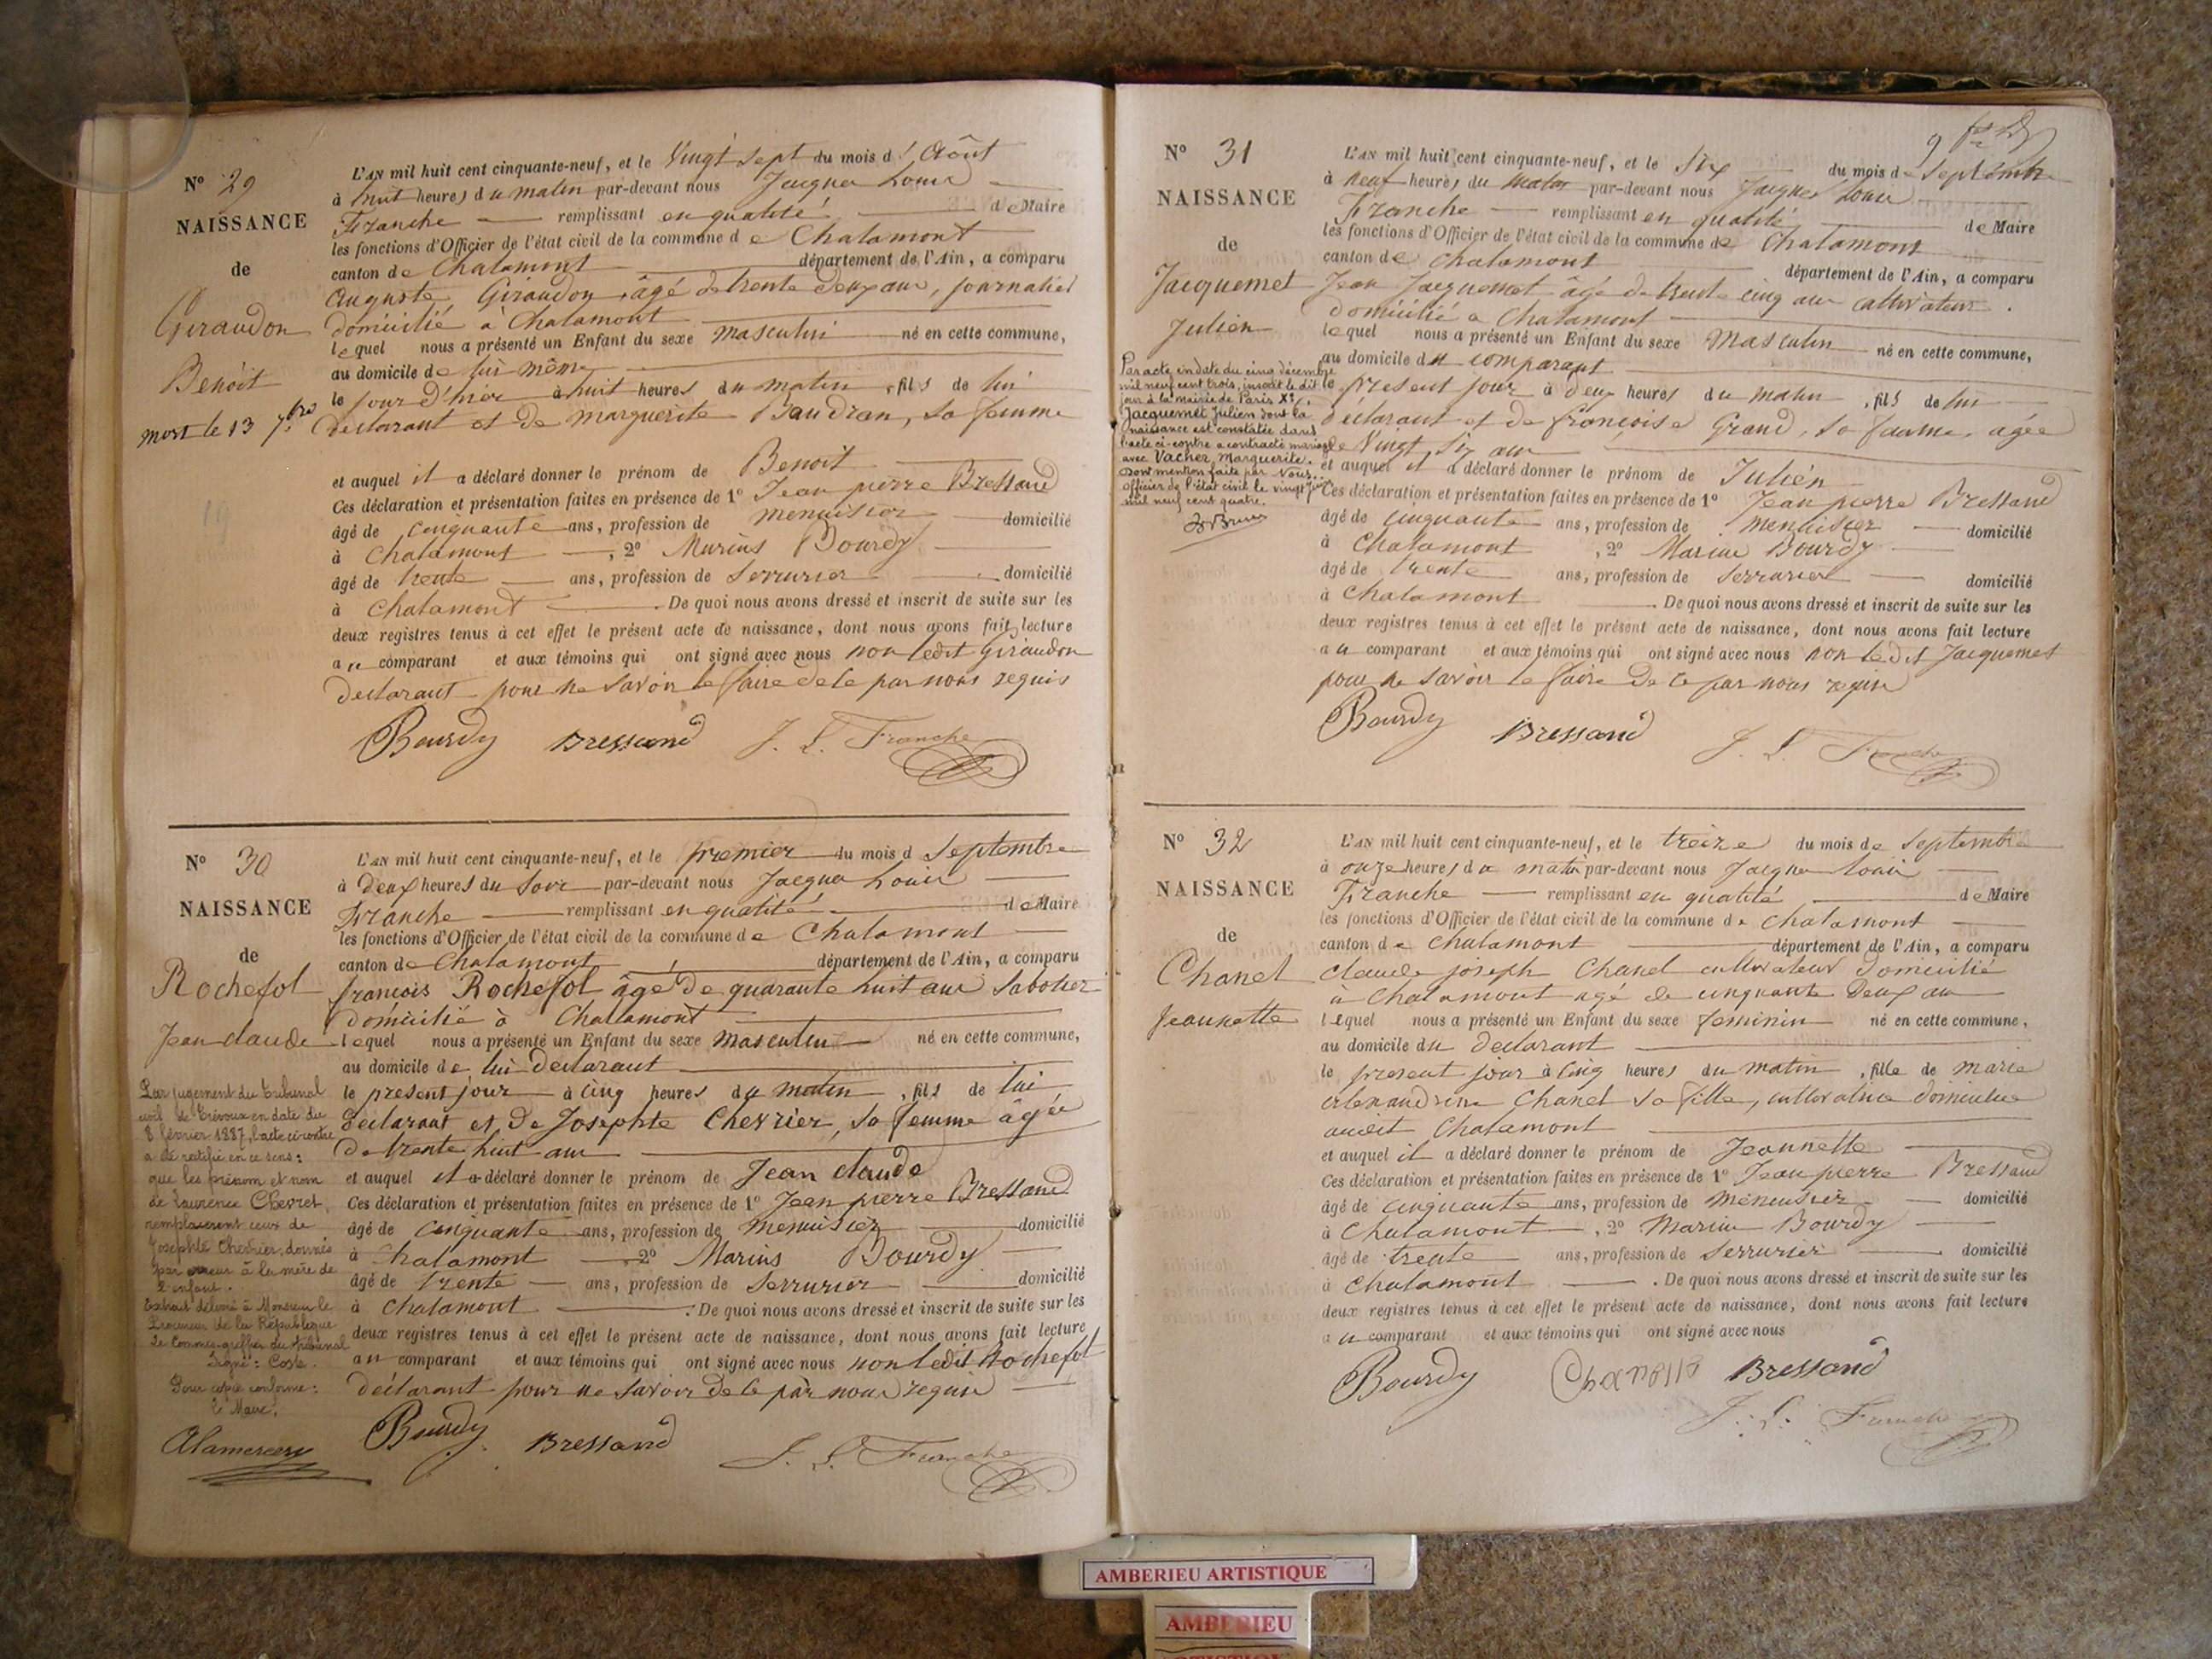 N° 29
NAISSANCE
de
Giraudon
Benoit
mort le 13 7bre
L'AN mil huit cent cinquante-neuf, et le Vingt Sept du mois d' Août
à huit heures du matin par-devant nous Jacques Louis
Franche remplissant en qualité de Maire
les fonctions d'Officier de l'état civil de la commune de Chalamont
canton de Chalamont département de l'Ain, a comparu
Auguste Giraudon, âgé de trente deux ans, journalier
domicilié à Chalamont
lequel nous a présenté un Enfant du sexe masculin né en cette commune,
au domicile de lui même
le jour d'hier à huit heures du matin, fils de lui
déclarant et de Marguerite Baudran, sa femme
et auquel il a déclaré donner le prénom de Benoit
Ces déclaration et présentation faites en présence de 1° Jean pierre Bressand
âgé de cinquante ans, profession de menuisier domicilié
à Chalamont, 2° Marius Bourdy
âgé de trente ans, profession de Serrurier domicilié
à Chalamont. De quoi nous avons dressé et inscrit de suite sur les
deux registres tenus à cet effet le présent acte de naissance, dont nous avons fait lecture
au comparant et aux témoins qui ont signé avec nous non ledit Giraudon
déclarant pour ne savoir le faire de ce par nous requis
Bourdy Bressand J. L. Franche
N° 30
NAISSANCE
de
Rochefol
Jean claude
Par jugement du tribunal
civil de Trévoux en date du
8 février 1887, l'acte ci-contre
a été rectifié en ce sens:
que les prénom et nom
de Laurence Chevret,
remplaceront ceux de
Josephte Chevrier, donnés
par erreur à la mère de
l'enfant.
Extrait délivré à Monsieur le
Procureur de la République
Le Commis-greffier du tribunal
Signé: Coste.
Pour copie conforme:
le Maire,
Alamercery
L'AN mil huit cent cinquante-neuf, et le premier du mois d Septembre
à deux heures du Soir par-devant nous Jacques Louis
Franche remplissant en qualité de Maire
les fonctions d'Officier de l'état civil de la commune de Chalamont
canton de Chalamont département de l'Ain, a comparu
françois Rochefol âgé de quarante huit ans Sabotier
domicilié à Chalamont
lequel nous a présenté un Enfant du sexe masculin né en cette commune,
au domicile de lui déclarant
le présent jour à cinq heures du matin, fils de lui
déclarant et de Josephte Chevrier, sa femme âgée
de trente huit ans
et auquel il a déclaré donner le prénom de Jean claude
Ces déclaration et présentation faites en présence de 1° Jean pierre Bressand
âgé de cinquante ans, profession de menuisier domicilié
à Chalamont 2° Marius Bourdy
âgé de trente ans, profession de Serrurier domicilié
à Chalamont. De quoi nous avons dressé et inscrit de suite sur les
deux registres tenus à cet effet le présent acte de naissance, dont nous avons fait lecture
au comparant et aux témoins qui ont signé avec nous non ledit Rochefol
déclarant pour ne savoir de ce par nous requis
Bourdy Bressand J. L. Franche
9
N° 31
NAISSANCE
de
Jacquemet
Julien
Par acte, en date du cinq décembre
mil neuf cent trois, inscrit le dit
jour à la mairie de Paris XIe,
Jacquemet Julien dont la
naissance est constatée dans
l'acte ci-contre a contracté mariage
avec Vacher Marguerite.
Dont mention faite par Nous,
officier de l'état civil le vingt juin
mil neuf cent quatre.
L'AN mil huit cent cinquante-neuf, et le Six du mois de Septembre
à neuf heures du matin par-devant nous Jacques Louis
Franche remplissant en qualité de Maire
les fonctions d'Officier de l'état civil de la commune de Chalamont
canton de Chalamont département de l'Ain, a comparu
Jean Jacquemet âgé de trente cinq ans cultivateur
domicilié à Chalamont
lequel nous a présenté un Enfant du sexe Masculin né en cette commune,
au domicile du comparant
le présent jour à deux heures du matin, fils de lui
déclarant et de françoise Grand, sa femme, agée
de Vingt Six ans
et auquel il a déclaré donner le prénom de Julien
Ces déclaration et présentation faites en présence de 1° Jean pierre Bressand
âgé de cinquante ans, profession de menuisier domicilié
à Chalamont, 2° Marius Bourdy
âgé de trente ans, profession de Serrurier domicilié
à Chalamont. De quoi nous avons dressé et inscrit de suite sur les
deux registres tenus à cet effet le présent acte de naissance, dont nous avons fait lecture
au comparant et aux témoins qui ont signé avec nous non le dit Jacquemet
pour ne savoir le faire de ce par nous requis
Bourdy Bressand J. L. Franche
N° 32
NAISSANCE
de
Chanel
Jeannette
L'AN mil huit cent cinquante-neuf, et le treize du mois de Septembre
à onze heures du matin par-devant nous Jacques Louis
Franche remplissant en qualité de Maire
les fonctions d'Officier de l'état civil de la commune de Chalamont
canton de Chalamont département de l'Ain, a comparu
claude joseph Chanel cultivateur domicilié
à Chalamont agé de cinquante deux ans
lequel nous a présenté un Enfant du sexe feminin né en cette commune,
au domicile du déclarant
le présent jour à cinq heures du matin, fille de marie
Chanel sa fille, cultivatrice domiciliée
audit Chalamont
et auquel il a déclaré donner le prénom de Jeannette
Ces déclaration et présentation faites en présence de 1° Jean pierre Bressand
âgé de cinquante ans, profession de menuisier domicilié
à Chalamont, 2° Marius Bourdy
âgé de trente ans, profession de Serrurier domicilié
à Chalamont. De quoi nous avons dressé et inscrit de suite sur les
deux registres tenus à cet effet le présent acte de naissance, dont nous avons fait lecture
au comparant et aux témoins qui ont signé avec nous
Bourdy Bressand
J. L. Franche
AMBERIEU ARTISTIQUE
AMBERIEU
ARTISTIQUE